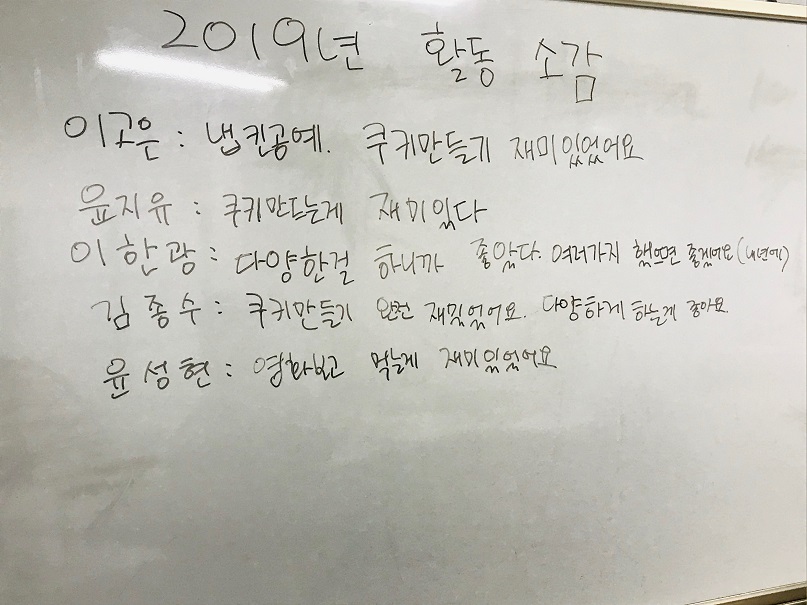 2019년 활동 소감
이고은 : 냅킨공예. 쿠키만들기 재미있었어요
윤지유 : 쿠키만드는게 재미있다
이한광 : 다양한걸 하니까 좋았다. 여러가지 했으면 좋겠어요 (내년에)
김종수 : 쿠키만들기 완전 재밌었어요. 다양하게 하는게 좋아요.
윤성현 : 영화보고 먹는게 재미있었어요